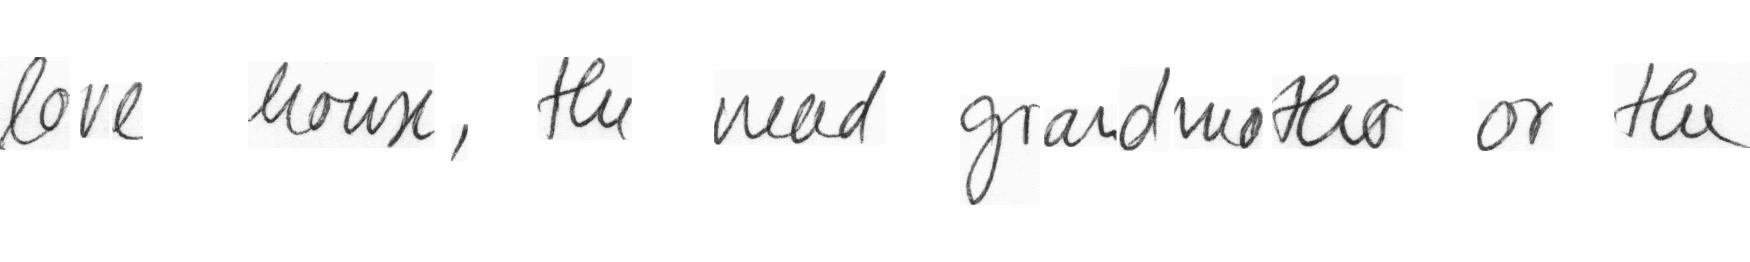 love house, the need grandmother or the